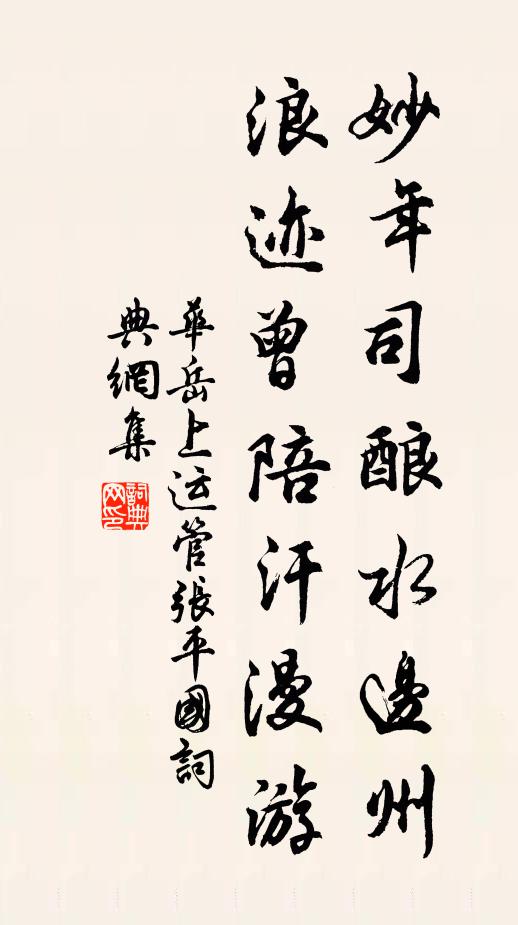 妙年司酿水邊州
浪迹曾陪汗漫游
華岳上运管張平國詞
典網集
詞典网印